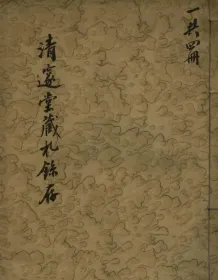 一共四冊
清邃堂藏札餘存